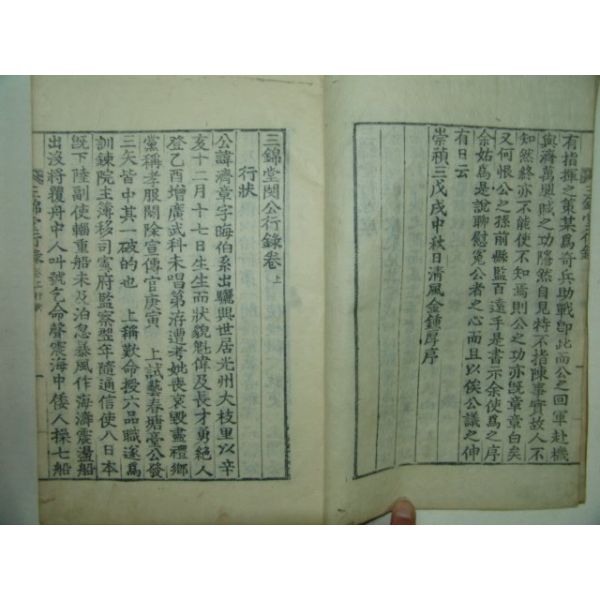 有指揮之策某爲奇兵助戰卽此而公之回軍赴機
與濟萬恩賊之功隆然自見特不指陳事實故人不
知然終亦不能使不知焉則公之功亦旣章章白矣
又何恨公之孫前縣監百遠手是書示余使爲之序
余姑爲是說聊慰冤公者之心而且以俟公議之伸
有日云
崇禎三戊戌中秋日淸風金鍾厚序
三錦堂閔公行錄卷上
行狀
公諱濟章字晦伯系出驪興世居光州大枝里以辛
亥十二月十七日生生而狀貌魁偉及長才勇絶人
登乙酉增廣武科未唱第游遭考妣喪哀毁盡禮鄕
黨稱孝服闋除宣傳官庚寅 上試藝春塘臺公發
三矢皆中其一破的也 上稱歎命授六品職遂爲
訓鍊院主簿移司憲府監察翌年隨通信使入日本
旣下陸副使輜重船未及泊急暴風作海濤震盪船
出沒將覆舟中人叫號乞命聲震海中倭人操七船